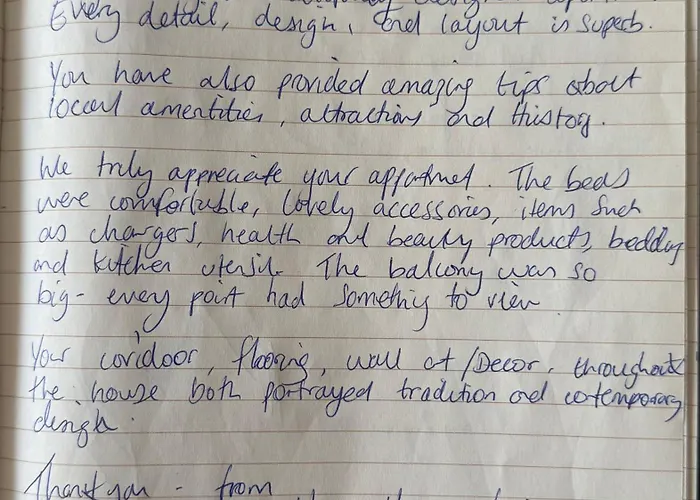 Every detail, design, and layout is superb.
You have also provided amazing tips about
local amentitie, attractions and history.
We truly appreciate your appartmet. The beds
were comfortable, lovely accessories, items such
as chargers, health and beauty products, bedding
and kitchen utensil. The balcony was so
big- every point had something to view
Your corridoor, flooring, wall art/Decor, throughout
the house both portrayed tradition and contemporary
design.
Thank you - from